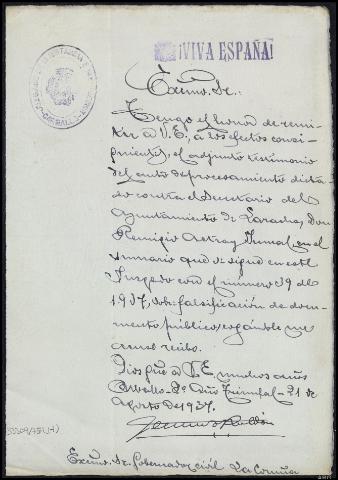 ¡VIVA ESPAÑA!
Excmo. Sr.:
Tengo el honor de remi-
tir a V.E., a los efectos consi-
guientes, el adjunto testimonio
del auto de procesamiento dicta-
do contra el Secretario del
Ayuntamiento de Laracha, Don
Remigio Astray, en el
sumario que se sigue en este
Juzgado con el número 39 de
1937, sobre falsificación de docu-
mento público, rogándole me
acuse recibo.
Dios gue a V.E. muchos años
Carballo - 2º Año Triunfal - 21 de
Agosto de 1937.
Excmo. Sr. Gobernador civil La Coruña